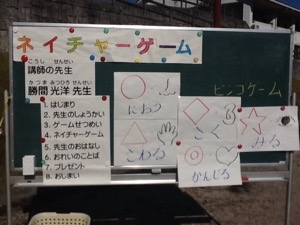 ネイチャーゲーム
こうし せんせい
講師の先生
かつま みつひろ せんせい
勝間 光洋 先生
1. はじまり
2. 先生のしょうかい
3. ゲームせつめい
4. ネイチャーゲーム
5. 先生のおはなし
6. おれいのことば
7. プレゼント
8. おしまい
ビンゴゲーム
におう
さわる
きく
かんじる
みる